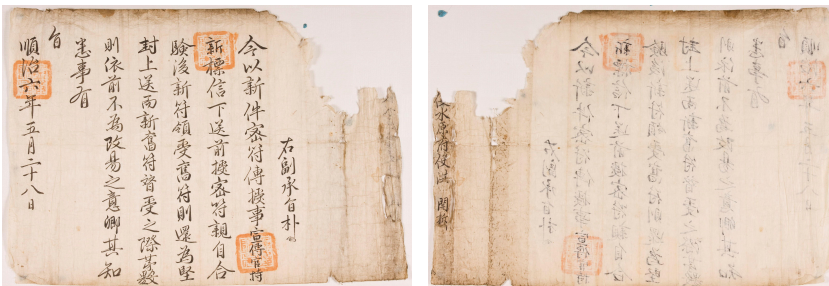 右副承旨朴
今以新件密符傳授事宣傳官持
新標信下送前授密符親自合
驗後新符領受舊符則還爲堅
封上送而新舊符受之際數
則依前不為改易之意卿其知
悉事有
旨
順治六年五月二十八日
水原府使 開拆